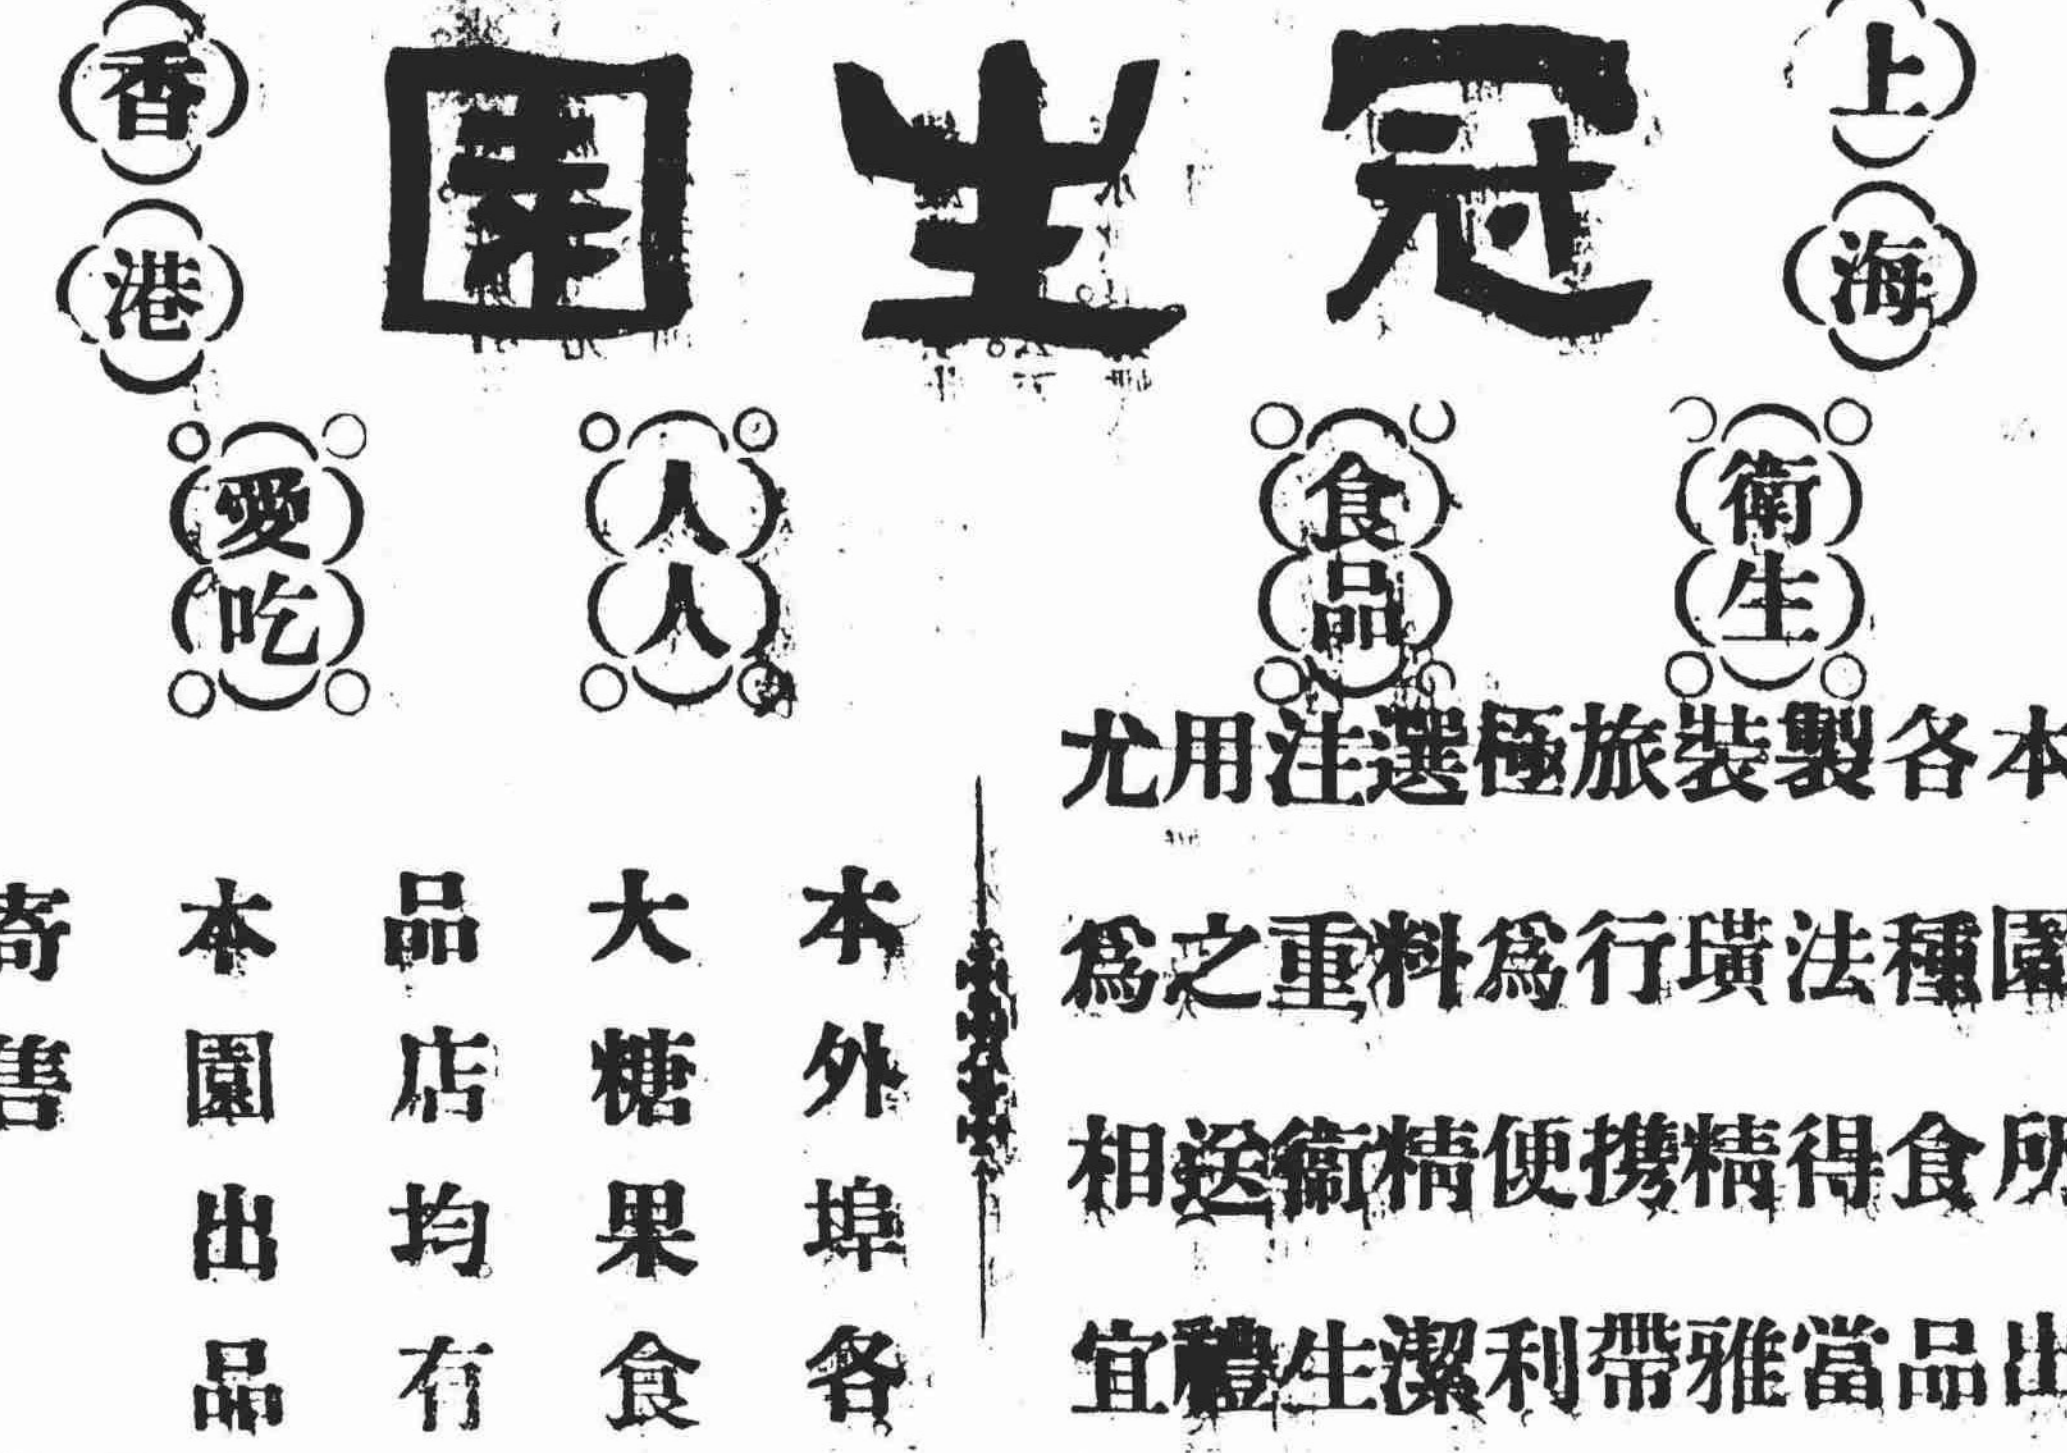 上海
冠生園
香港
衛生
食品
人人
愛吃
本園所出
各種食品
製法得當
裝璜精雅
旅行携帶
極爲便利
選料精潔
注重衛生
用之送禮
尤爲相宜
本外埠各
大糖果食
品店均有
本園出品
寄售